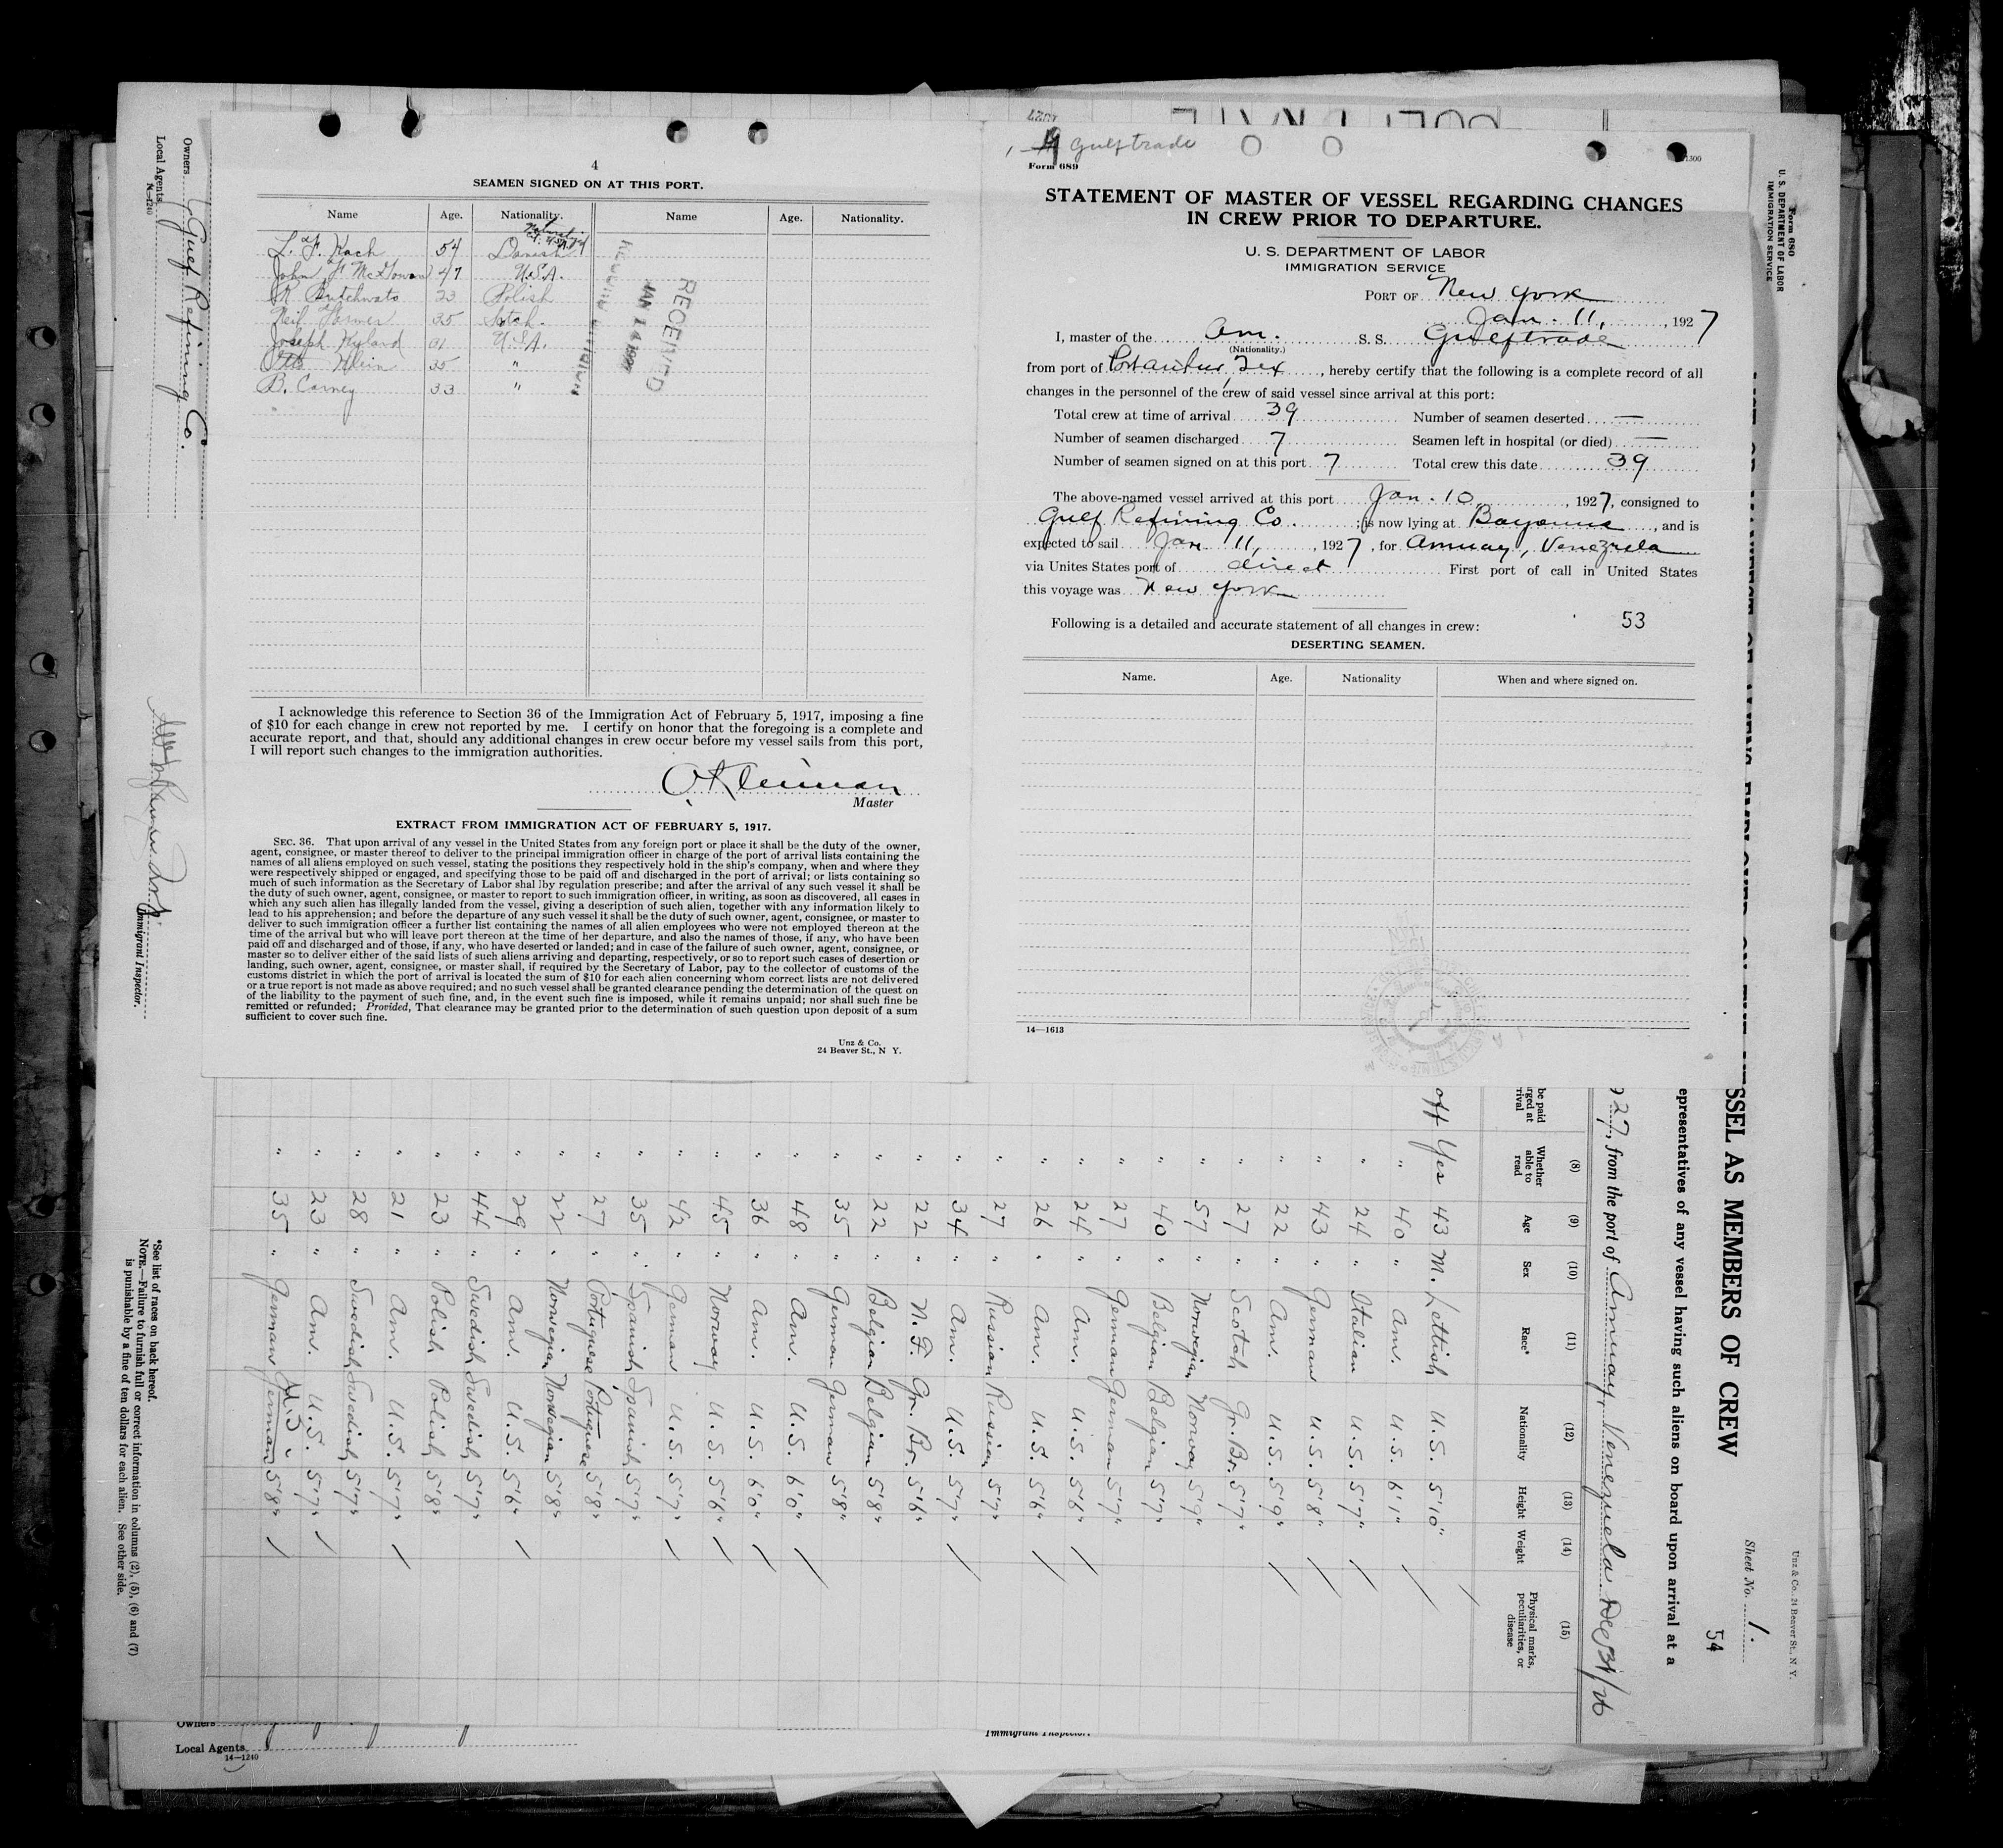 4
SEAMEN SIGNED ON AT THIS PORT.
Name Age. Nationality. Name Age. Nationality.
L. F. Koch 54 Danish
John F McGowan 47 U.S.A.
R 23 Polish
Neil 35 Scotch.
Joseph Hyland U.S.A.
Otto Klein 35 "
B. Carney 33 "
RECEIVED
I acknowledge this reference to Section 36 of the Immigration Act of February 5, 1917, imposing a fine
of $10 for each change in crew not reported by me. I certify on honor that the foregoing is a complete and
accurate report, and that, should any additional changes in crew occur before my vessel sails from this port,
I will report such changes to the immigration authorities.
Master
EXTRACT FROM IMMIGRATION ACT OF FEBRUARY 5, 1917.
SEC. 36. That upon arrival of any vessel in the United States from any foreign port or place it shall be the duty of the owner,
agent, consignee, or master thereof to deliver to the principal immigration officer in charge of the port of arrival lists containing the
names of all aliens employed on such vessel, stating the positions they respectively hold in the ship's company, when and where they
were respectively shipped or engaged, and specifying those to be paid off and discharged in the port of arrival; or lists containing so
much of such information as the Secretary of Labor shal lby regulation prescribe; and after the arrival of any such vessel it shall be
the duty of such owner, agent, consignee, or master to report to such immigration officer, in writing, as soon as discovered, all cases in
which any such alien has illegally landed from the vessel, giving a description of such alien, together with any information likely to
lead to his apprehension; and before the departure of any such vessel it shall be the duty of such owner, agent, consignee, or master to
deliver to such immigration officer a further list containing the names of all alien employees who were not employed thereon at the
time of the arrival but who will leave port thereon at the time of her departure, and also the names of those, if any, who have been
paid off and discharged and of those, if any, who have deserted or landed; and in case of the failure of such owner, agent, consignee, or
master so to deliver either of the said lists of such aliens arriving and departing, respectively, or so to report such cases of desertion or
landing, such owner, agent, consignee, or master shall, if required by the Secretary of Labor, pay to the collector of customs of the
customs district in which the port of arrival is located the sum of $10 for each alien concerning whom correct lists are not delivered
or a true report is not made as above required; and no such vessel shall be granted clearance pending the determination of the quest on
of the liability to the payment of such fine, and, in the event such fine is imposed, while it remains unpaid; nor shall such fine be
remitted or refunded; Provided, That clearance may be granted prior to the determination of such question upon deposit of a sum
sufficient to cover such fine.
Unz & Co.
24 Beaver St., N Y.
Gulftrade
Form 689
STATEMENT OF MASTER OF VESSEL REGARDING CHANGES
IN CREW PRIOR TO DEPARTURE.
U. S. DEPARTMENT OF LABOR
IMMIGRATION SERVICE
PORT OF New York
Jan. 11, 1927
I, master of the Am. S. S. Gulftrade
(Nationality.)
from port of Port Arthur, Tex, hereby certify that the following is a complete record of all
changes in the personnel of the crew of said vessel since arrival at this port:
Total crew at time of arrival 39 Number of seamen deserted —
Number of seamen discharged 7 Seamen left in hospital (or died) —
Number of seamen signed on at this port 7 Total crew this date 39
The above-named vessel arrived at this port Jan. 10, 1927, consigned to
Gulf Refining Co.; is now lying at Bayonne, and is
expected to sail Jan 11, 1927, for Amuay, Venezuela
via Unites States port of direct First port of call in United States
this voyage was New York
Following is a detailed and accurate statement of all changes in crew: 53
DESERTING SEAMEN.
Name. Age. Nationality When and where signed on.
14—1613
Owners Gulf Refining Co.
Local Agents
14—1240
Immigrant Inspector.
Form 680
U. S. DEPARTMENT OF LABOR
IMMIGRATION SERVICE
Unz & Co., 24 Beaver St., N. Y.
Sheet No. 1.
54
SSEL AS MEMBERS OF CREW
epresentatives of any vessel having such aliens on board upon arrival at a
27, from the port of Amuay, Venezuela. Dec 31/26
(8) (9) (10) (11) (12) (13) (14) (15)
Whether able to read Age Sex Race* Nationality Height Weight Physical marks, peculiarities, or disease
off Yes 43 M. Lettish U.S. 5'10"
" 40 " Am. U.S. 6'1"
" 24 " Italian U.S. 5'7"
" 43 " German U.S. 5'8"
" 22 " Am. U.S. 5'9"
" 27 " Scotch Gr. Br. 5'7"
" 57 " Norwegian Norway 5'9"
" 40 " Belgian Belgian 5'7"
" 27 " German German 5'7"
" 24 " Am. U.S. 5'6"
" 26 " Am. U.S. 5'6"
" 27 " Russian Russian 5'7"
" 34 " Am. U.S. 5'7"
" 22 " N.F. Gr. Br. 5'6"
" 22 " Belgian Belgian 5'8"
" 35 " German German 5'8"
" 48 " Am. U.S. 6'0"
" 36 " Am. U.S. 6'0"
" 45 " Norway U.S. 5'6"
" 42 " German U.S. 5'7"
" 35 " Spanish Spanish 5'7"
" 27 " Portuguese Portuguese 5'8"
" 22 " Norwegian Norwegian 5'8"
" 29 " Am. U.S. 5'6"
" 44 " Swedish Swedish 5'7"
" 23 " Polish Polish 5'8"
" 21 " Am. U.S. 5'7"
" 28 " Swedish Swedish 5'7"
" 23 " Am. U.S. 5'7"
" 35 " German German U.S. 5'8"
*See list of races on back hereof.
NOTE.—Failure to furnish full or correct information in columns (2), (5), (6) and (7)
is punishable by a fine of ten dollars for each alien. See other side.
Owners
Local Agents
14—1240
Immigrant Inspector.